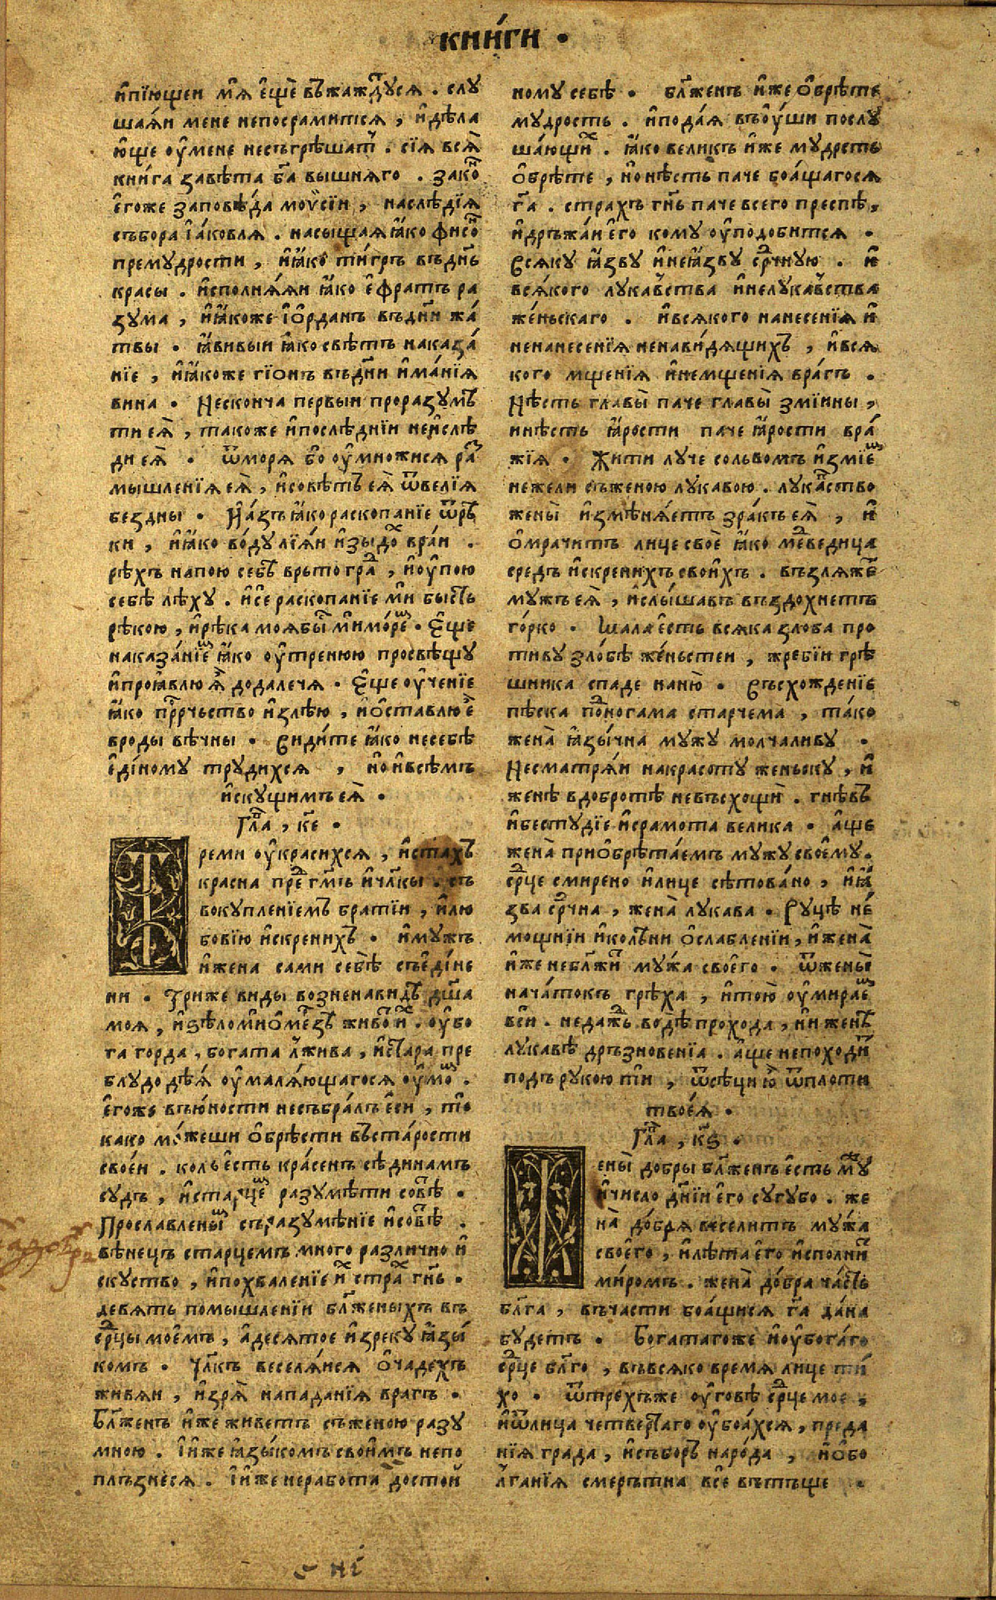 кни́ги ·
и҆пїю́щеи мѧ̀ є҆щѐ въжа́ждꙋсѧ . слꙋ
шаѧи мене непосрамитсѧ , и҆дѣла
ю҆ще ѹ҆мене несъгрѣшат̾ . сїѧ всѧ̀
книга завѣта бг҃а вышнѧго . зако̑
є҆гоже заповѣда мѡѷсїи , наслѣдїѧ
събора і҆а́ковлѧ . насыщаѧ ꙗ҆ко фисо̑
премꙋдрости , и҆ꙗ҆ко тигръ въдн҃ь
красы . и҆сполнѧ́ѧи ꙗ҆ко є҆фратъ ра
зꙋма , и҆ꙗ҆коже і҆ѻ҆рданъ въдн҃и жа́
твы . ꙗ҆вивыи ꙗ҆ко свѣтъ наказа́
нїе , и҆ꙗ҆коже гїонъ въдн҃и и҆ма́нїѧ
вина . Несконча первыи проразꙋмѣ
ти еѧ̀ , такоже и҆послѣднїи неи҆слѣ
ди еѧ̀ . ѿморѧ бо ѹ҆множисѧ ра̑
мышленїѧ еѧ̀ , и҆совѣтъ еѧ̀ ѿвелїѧ
бездны . И҆а́зъ ꙗ҆ко раскопанїе ѿрѣ
ки , и҆ꙗ҆ко во́дꙋлїѧи и҆зыдо̑ вра́и .
рѣхъ напою себѣ врътогра̑ , и҆ѹпою
себѣ лѣхꙋ . и҆се раскопанїе ми бысть
рѣкою , и҆рѣка моѧбы̑ ми мо́ре . Є҆ще
наказа́нїе ꙗ҆ко ѹ҆тренюю просвѣщꙋ
и҆проꙗ҆влю ѧ҆̀ додалечѧ . Є҆ще ѹ҆ченїе
ꙗ҆ко прⷪ҇рчьство и҆злѣю , и҆ѻ҆ставлю є҆̀
вроды вѣчны . Види́те ꙗ҆ко несебѣ
є҆ди́номꙋ трꙋдихсѧ , но и҆всѣмъ
и҆скꙋщимъ еѧ̀ .
Гл҃а , к҃е .
Треми ѹ҆красихсѧ , и҆стахъ
красна пре̑ гм҃ъ и҆чл҃кы . съ
вокꙋпленїемъ братїи , и҆лю
бовїю и҆скренихъ . и҆мꙋжъ
и҆жена сами себѣ съє҆ди́не
ни . Триже виды возненавидѣ дш҃а
моѧ , и҆ѕѣло ми ѻ҆мезѣ живо̑ и̑ . ѹ҆бо
га горда , богата лжива , и҆стара пре
блꙋдодѣѧ ѹ҆малѧющагосѧ ѹ҆мо̑ .
є҆гоже въю́ности несъбра́лъ єси , то
како мо́жеши ѻ҆брѣсти въста́рости
своеи . коль єсть кра́сенъ сѣдинамъ
сꙋдъ , и҆старце̑ разꙋмѣти совѣ̑ .
Прославлены̑ съразꙋмѣнїе и҆совѣ̑ .
вѣнецъ старцемъ много различно и҆
скꙋство , и҆похваленїе и҆̑ стра̑ гн҃ь .
девѧть помышленїи бл҃женыхъ въ
ср҃цы моемъ , а҆десѧтое и҆зрекꙋ ꙗ҆зы́
комъ . Чл҃къ веселѧ́исѧ ѻ҆чадехъ
живѧи , и҆зрѧ̀ нападанїѧ врагъ .
Бл҃женъ и҆же живетъ съженою разꙋ
мною . І҆и҆же ꙗ҆зы́комъ свои́мъ непо
плъзнесѧ . І҆и҆же неработа досто́и
номꙋ себѣ . бл҃женъ и҆же ѻ҆брѣте
мꙋдрость . и҆пода́ѧ въѹ҆ши послꙋ
ша́ющи̑ . ꙗ҆ко великъ и҆же мꙋдрсть
ѻ҆брѣте , но нѣсть паче боѧ́щагосѧ
г҃а . страхъ гн҃ь паче всего преспѣ ,
и҆дръжа́и є҆го комꙋ ѹ҆подобитсѧ .
Всѧкꙋ ꙗ҆́звꙋ и҆неꙗ҆́звꙋ ср҃чнꙋю . и҆
всѧкого лꙋка́вства и҆нелꙋка́вства
же́ньскаго . и҆всѧкого нанесенїѧ и҆
ненанесенїѧ ненави́дѧщихъ , и҆всѧ
кого мщенїѧ и҆немщенїѧ врагъ .
Нѣсть главы̀ паче главы̀ змїины ,
и҆нѣсть ꙗ҆рости паче ꙗ҆рости вра́
жїѧ . Жити лꙋче сольвомъ и҆змїе̑
нежели съженою лꙋкавою . лꙋка́вство
жены̀ и҆змѣнѧ́етъ зра́къ еѧ̀ , и҆
ѻ҆мрачитъ лице своѐ ꙗ҆ко ме̑ведица
средѣ и҆скренихъ свои́хъ . възлѧже̑
мꙋжъ еѧ̀ , и҆слы́шавъ въздохнетъ
го́рко . Мала є҆сть всѧка злоба про
тивꙋ злобѣ же́ньстеи , жребїи грѣ
шника спаде наню̀ . Въсхожденїе
пѣска по̑ногама старчема , та́ко
жена̀ ꙗ҆зы́чна мꙋжꙋ молчаливꙋ .
Несматрѧ́и накрасотꙋ женьскꙋ , и҆
женѣ вдобротѣ невъсхощи̑ . гнѣвъ
и҆бестꙋдїе и҆срамота велика . а҆ще
жена̀ приѻ҆брѣта́емъ мꙋжꙋ своемꙋ .
ср҃це смирено и҆лице сѣтова́но , и҆ꙗ҆́
зва ср҃чна , жена̀ лꙋкава . Рꙋцѣ не́
мощнїи и҆колѣни ѻ҆слабленїи , и҆жена̀
и҆же неблж҃и̑ мꙋ́жа своего . ѿжены̀
нача́токъ грѣха , и҆тою̀ ѹ҆мирае̑
вси . неда́жь водѣ прохода , ни женѣ
лꙋкавѣ дръзновенїа . а҆ще непоходи̑
подъ рꙋкою ти , ѿсѣци ю҆̀ ѿплоти
твоеѧ́ .
Гл҃а , к҃ѕ .
Жены̀ добры бл҃женъ є҆сть мꙋ̑
и҆число дн҃їи є҆го сꙋгꙋбо . же
на̀ до́браѧ веселитъ мꙋ́жа
своего , и҆лѣта є҆го и҆сполни̑
миромъ . жена̀ до́бра ча́сть
бл҃га , въчасти боѧ́щисѧ г҃а да́на
бꙋдетъ . Богатагоже и҆ѹбога́го
ср҃це бл҃го , въвсѧко времѧ лице ти́
хо . ѿтре́хъже ѹ҆говѣ ср҃це мое ,
и҆ѿлица четвертаго ѹ҆боѧ́хсѧ , преда
нїѧ града , и҆съборъ народа , и҆ѻ҆бо
лганїѧ смерътна все вътъще .